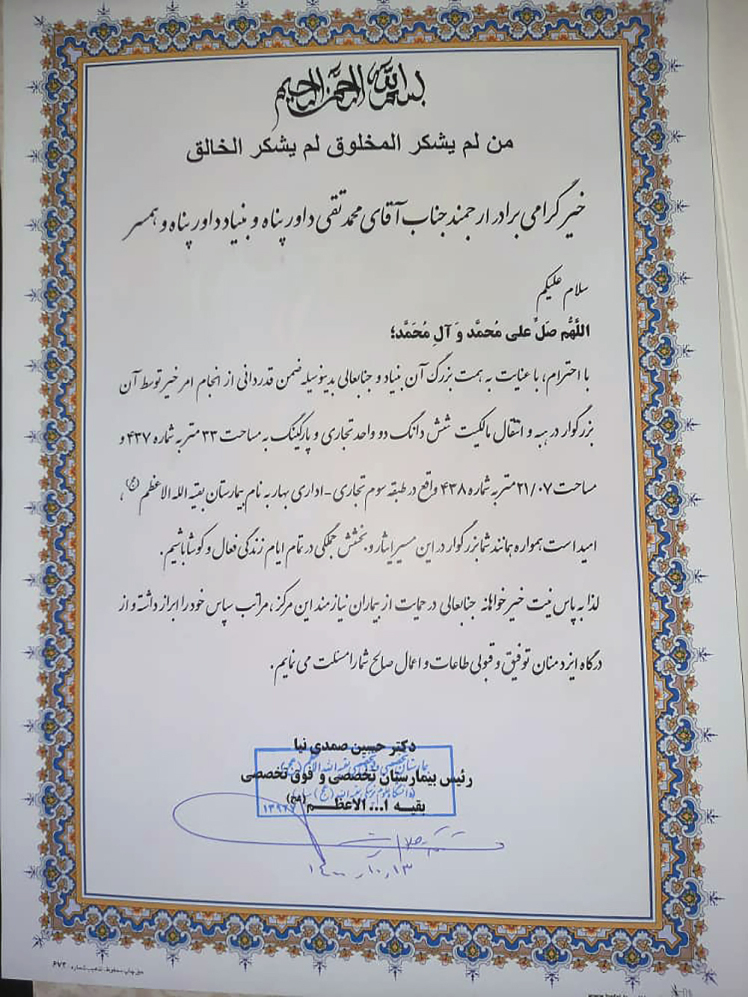 بسم الله الرحمن الرحیم
من لم یشکر المخلوق لم یشکر الخالق
خیر گرامی برادر ارجمند جناب آقای محمد تقی داور پناه و بنیاد داور پناه و همسر
سلام علیکم
اللَّهُم صَلِّ علی مُحمَّد وَ آلِ مُحَمَّد؛
با احترام، با عنایت به همت بزرگ آن بنیاد و جنابعالی بدینوسیله ضمن قدردانی از انجام امر خیر توسط آن
بزرگوار در هبه و انتقال مالکیت شش دانگ دو واحد تجاری و پارکینگ به مساحت ۳۳ متر به شماره ۴۳۷ و
مساحت ۲۱/۰۷ متر به شماره ۴۳۸ واقع در طبقه سوم تجاری - اداری بهار به نام بیمارستان بقیه الله الاعظم (عج)،
امید است همواره همانند شما بزرگوار در این مسیر ایثار و بخشش جملگی در تمام ایام زندگی فعال و کوشا باشیم.
لذا به پاس نیت خیرخواهانه جنابعالی در حمایت از بیماران نیازمند این مرکز، مراتب سپاس خود را ابراز داشته و از
درگاه ایزد منان توفیق و قبولی طاعات و اعمال صالح شما را مسئلت می نمایم.
دکتر حسین صمدی نیا
رئیس بیمارستان تخصصی و فوق تخصصی
بقیه ا... الاعظم (عج)
۱۴۰۰/۱۰/۱۳
حق چاپ محفوظ، تذهیب شماره: ۶۷۲